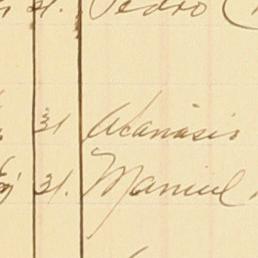 21. Pedro
31 Atanasio
31. Manuel